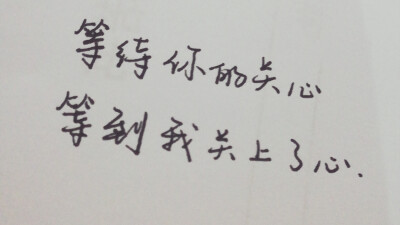 等待你的关心
等到我关上了心.